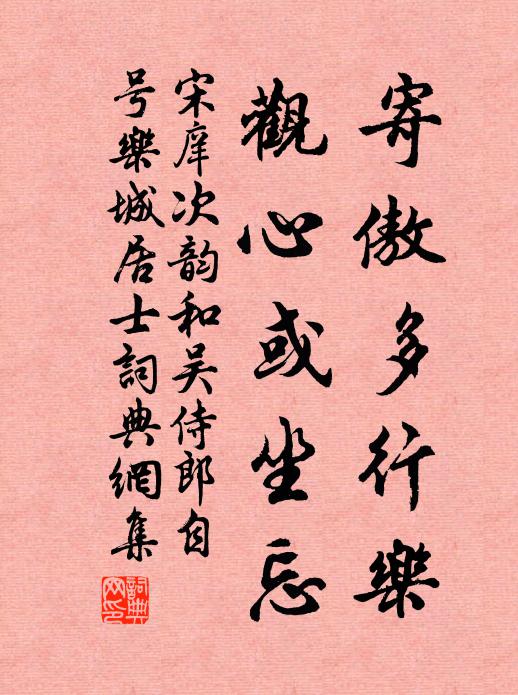 寄傲多行樂
觀心或坐忘
宋庠次韵和吴侍郎自
号樂城居士詞典網集
詞典网印